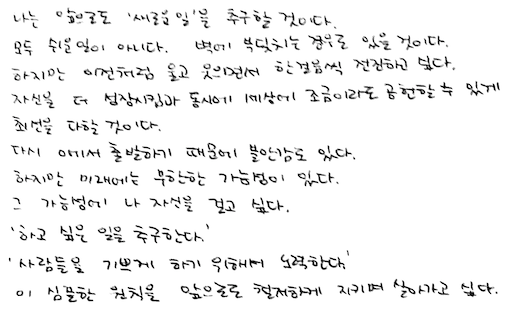 나는 앞으로도 '새로운 일'을 추구할 것이다.
모두 쉬운일이 아니다. 벽에 부딪치는 경우도 있을 것이다.
하지만 이전처럼 울고 웃으면서 한걸음씩 전진하고 싶다.
자신을 더 성장시킴과 동시에 세상에 조금이라도 공헌할 수 있게
최선을 다할 것이다.
다시 0에서 출발하기 때문에 불안감도 있다.
하지만 미래에는 무한한 가능성이 있다.
그 가능성에 나 자신을 걸고 싶다.
'하고 싶은 일을 추구한다.'
'사람들을 기쁘게 하기 위해서 노력한다.'
이 심플한 원칙을 앞으로도 철저하게 지키며 살아가고 싶다.